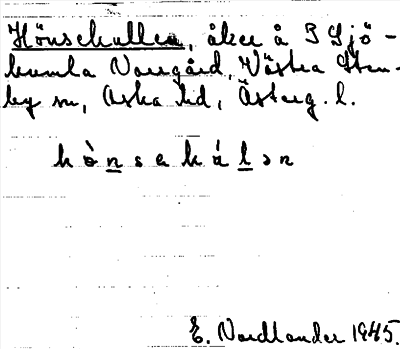 Hönsekullen, åker å I Sjö-
kumla Norrgård, Västra Sten-
by sn, Aska hd, Österg. l.
hö̀nsekúlən
E. Nordlander 1945.